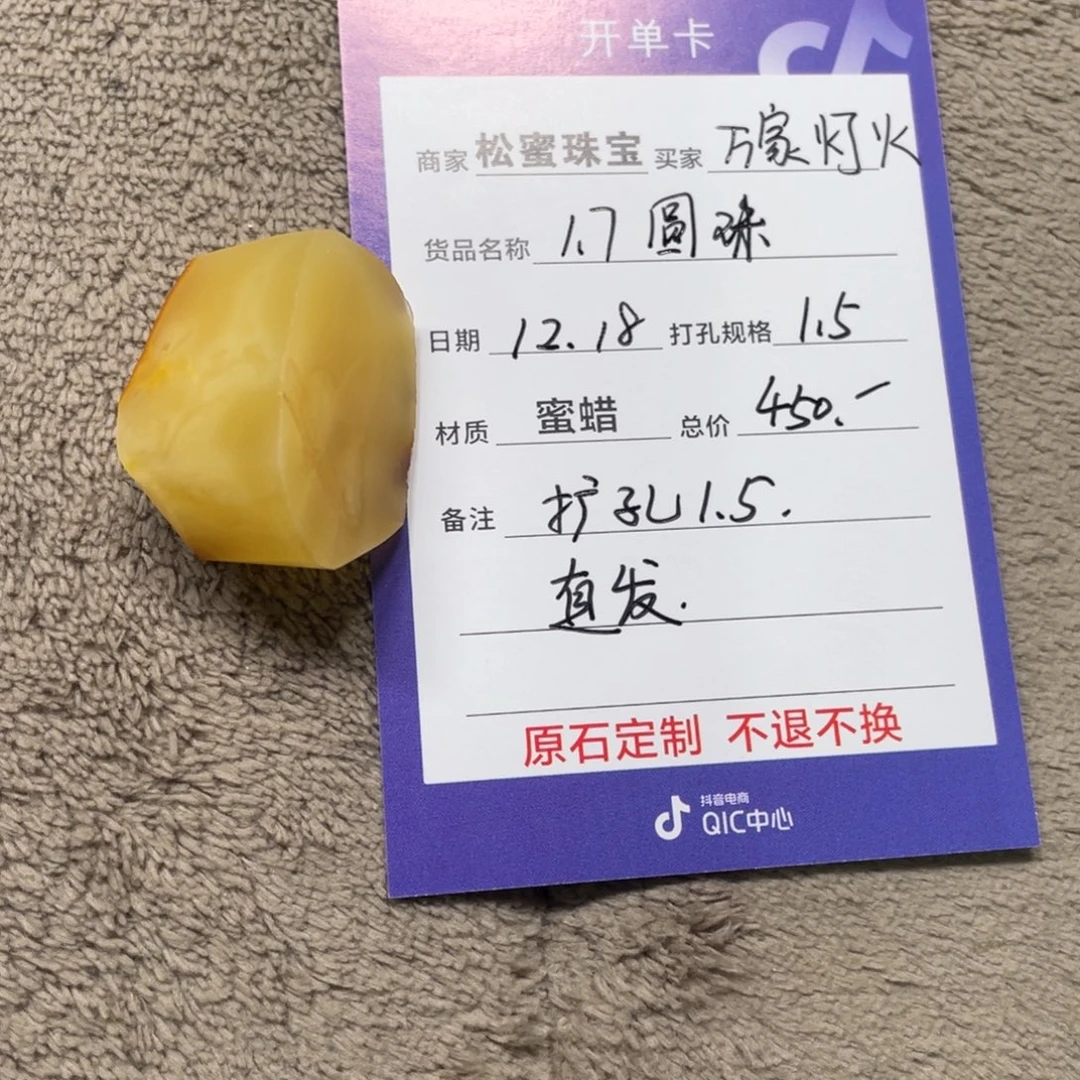 开单卡
商家 松蜜珠宝 买家 万家灯火
货品名称 1.7 圆珠
日期 12.18 打孔规格 1.5
材质 蜜蜡 总价 450.-
备注 扩孔 1.5.
直发.
原石定制 不退不换
抖音电商
QIC中心